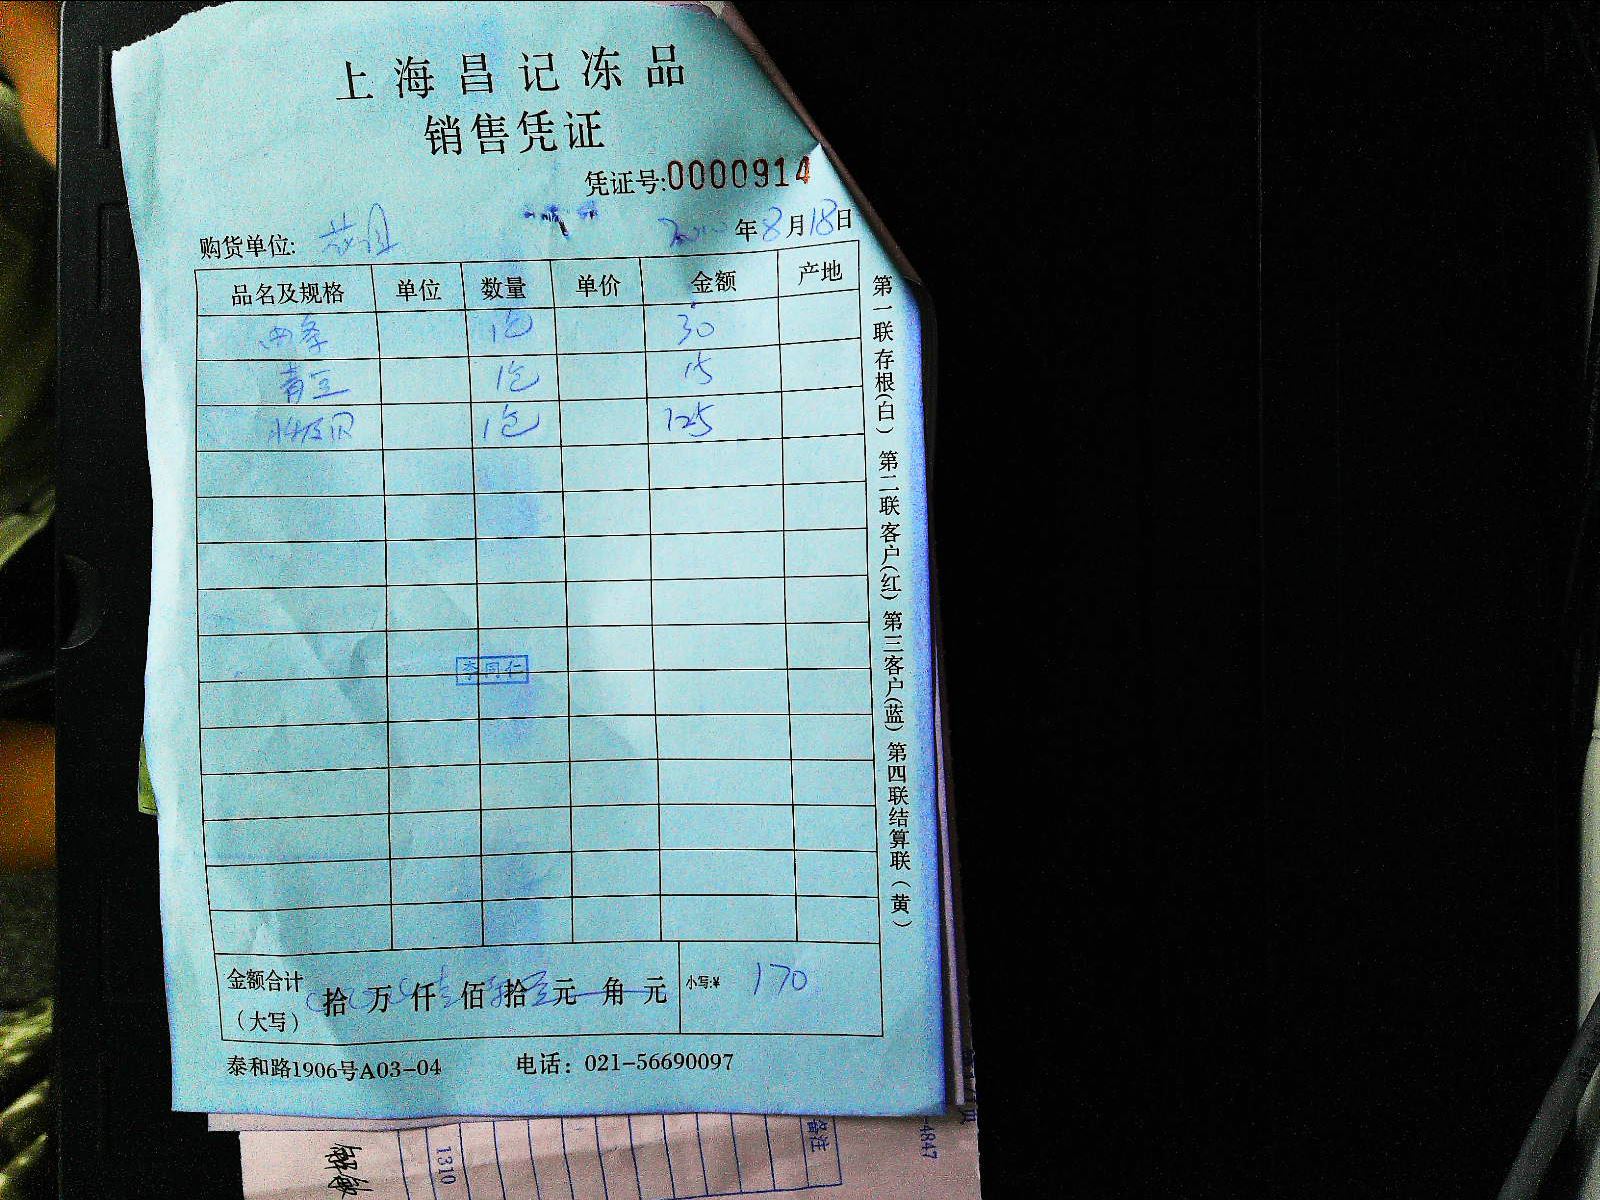 上海昌记冻品
销售凭证
凭证号:0000914
购货单位: 年8月18日
品名及规格 单位 数量 单价 金额 产地
1包 30
青豆 1包 15
1包 125
李同仁
金额合计（大写） 拾 万 仟 佰 拾 元 角 元 小写:¥ 170
泰和路1906号A03-04 电话：021-56690097
第一联存根(白) 第二联客户(红) 第三客户(蓝) 第四联结算联(黄)
备注
4847
1310